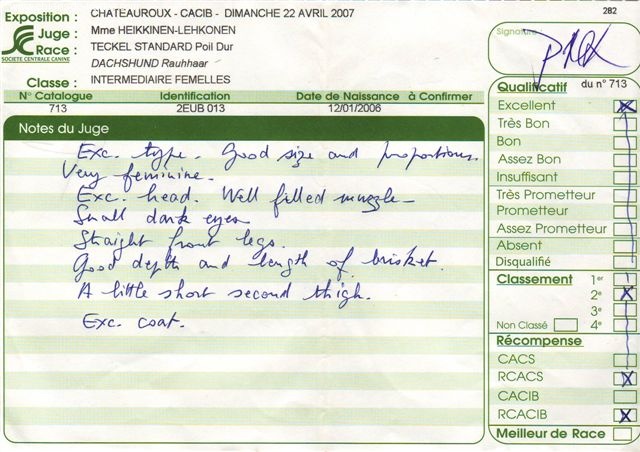 282
Exposition : CHATEAUROUX - CACIB - DIMANCHE 22 AVRIL 2007
Juge : Mme HEIKKINEN-LEHKONEN
Race : TECKEL STANDARD Poil Dur
SOCIETE CENTRALE CANINE
DACHSHUND Rauhhaar
Classe : INTERMEDIAIRE FEMELLES
N° Catalogue Identification Date de Naissance à Confirmer
713 2EUB 013 12/01/2006
Notes du Juge
Exc. type. Good size and proportions.
Very feminine.
Exc. head. Well filled muzzle -
Small dark eyes
Straight front legs.
Good depth and length of brisket.
A little short second thigh.
Exc. coat.
Signature
Qualificatif du n° 713
Excellent X
Très Bon
Bon
Assez Bon
Insuffisant
Très Prometteur
Prometteur
Assez Prometteur
Absent
Disqualifié
Classement 1er
2e X
3e
Non Classé 4e
Récompense
CACS
RCACS X
CACIB
RCACIB X
Meilleur de Race